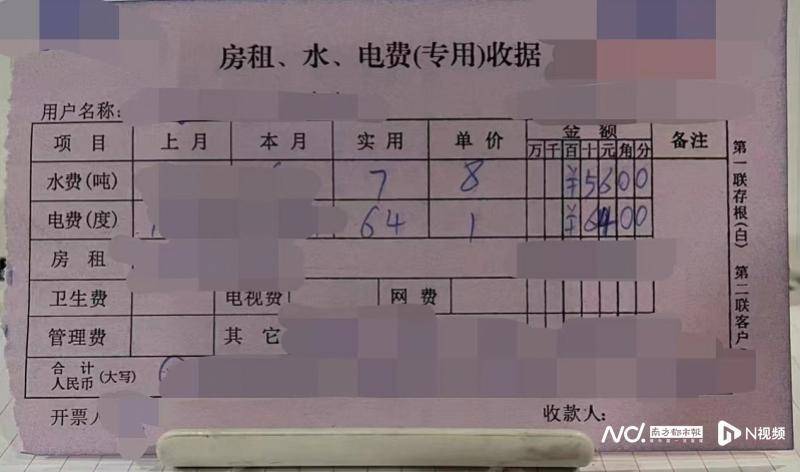 房租、水、电费(专用)收据
用户名称:
项 目 上 月 本 月 实 用 单 价 金 额 备注
万 千 百 十 元 角 分
水费(吨) 7 8 ¥ 5 6 0 0
电费(度) 64 1 ¥ 6 4 0 0
房 租
卫生费 电视费 网 费
管理费 其 它
合 计
人民币 (大写)
开票人 收款人:
第一联存根(白) 第二联客户
ND. 南方都市报 N视频